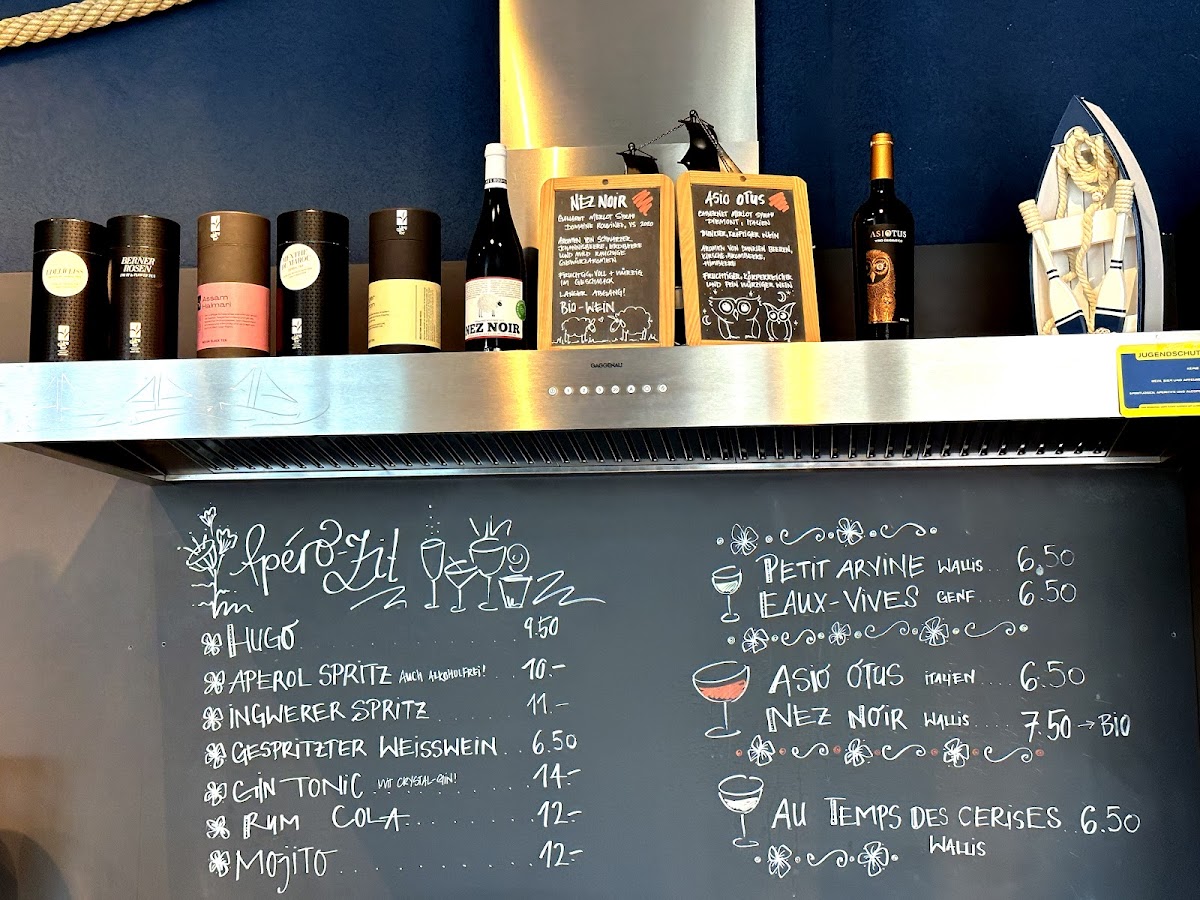 EDELWEISS
BERNER
ROSEN
Assam
Halmari
NEZ NOIR
NEZ NOIR
GAMARET MERLOT SYRAH
AROMEN VON SCHWARZER
JOHANNISBEERE, ERDBEERE
UND WIRD RAUCHIGE
GEWÜRZAROMEN
FRUCHTIG, VOLL + WÜRZIG
IM GESCHMACK
LANGER ABGANG!
BIO-WEIN
ASIO OTUS
CABERNET MERLOT SYRAH
PIEMONT, ITALIEN
DUNKLER, KRÄFTIGER WEIN
AROMEN VON DUNKLEN BEEREN,
FRUCHTIGER, KÖRPERREICHER
UND FEIN WÜRZIGER WEIN
ASIOTUS
GAGGENAU
JUGENDSCHUT
Apéro-Zit
HUGO 9.50
APEROL SPRITZ AUCH ALKOHOLFREI! 10.-
INGWERER SPRITZ 11.-
GESPRITZTER WEISSWEIN 6.50
GIN TONIC MIT CRYSTAL-GIN! 14.-
RUM COLA 12.-
MOJITO 12.-
PETIT ARVINE WALLIS 6.50
EAUX-VIVES GENF 6.50
ASIO OTUS ITALIEN 6.50
NEZ NOIR WALLIS 7.50 → BIO
AU TEMPS DES CERISES 6.50
WALLIS